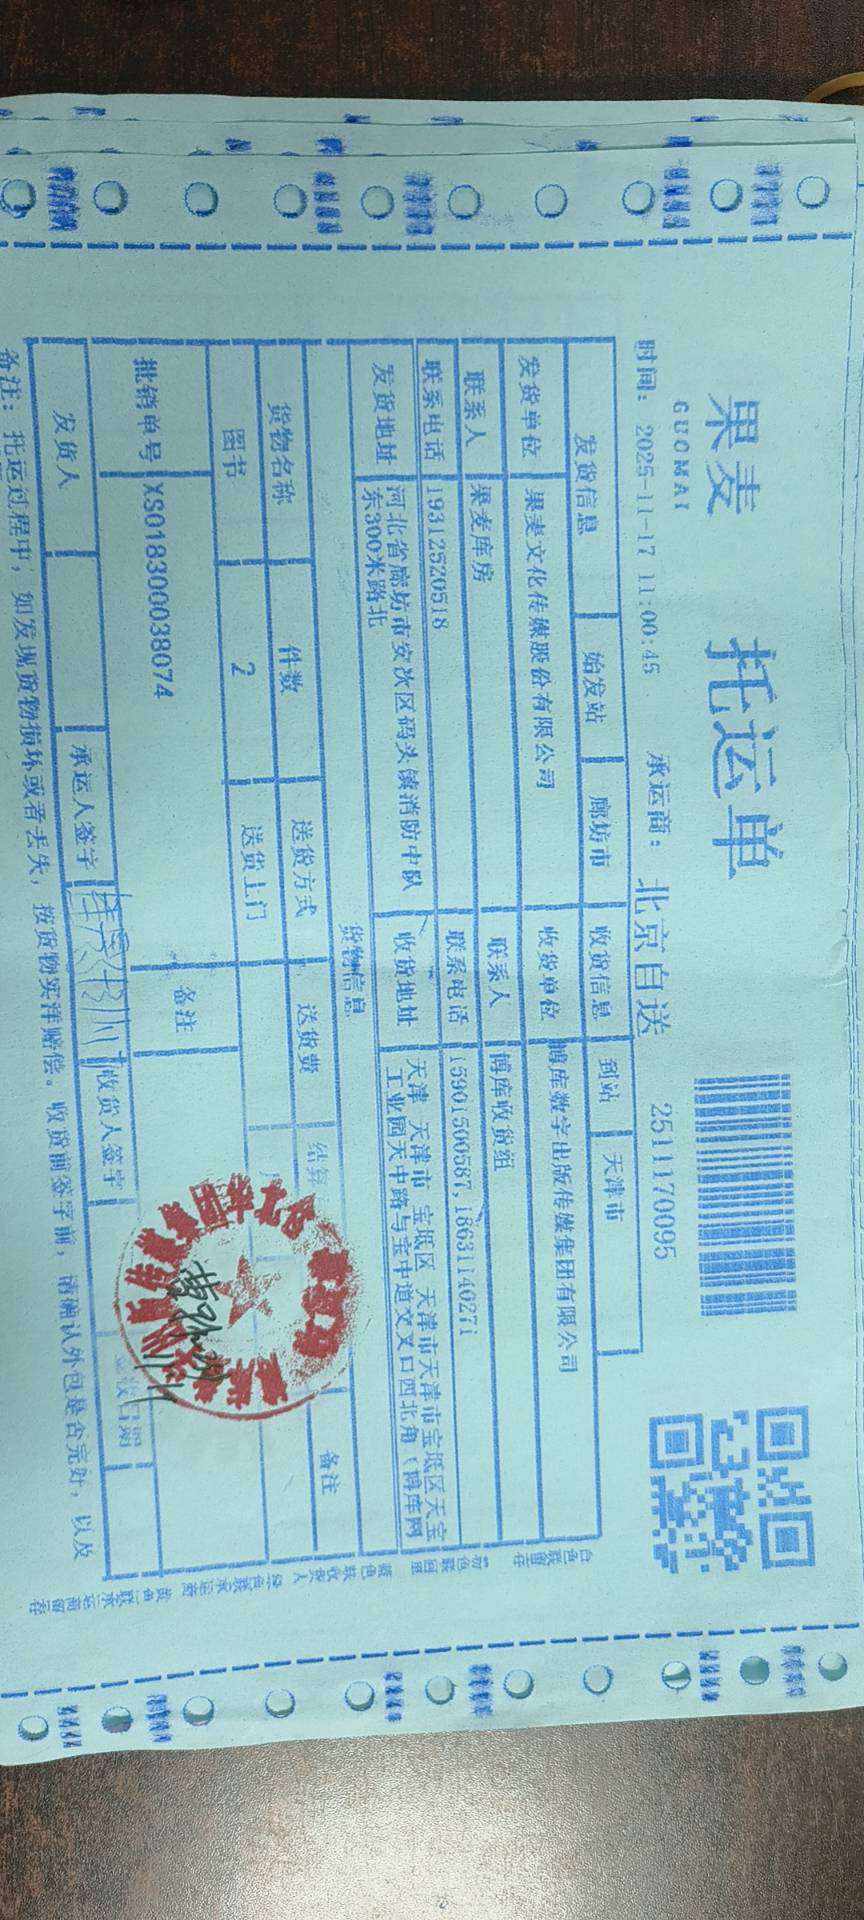 果麦
GUOMAI
托运单
2511170095
时间: 2025-11-17 11:00:45
承运商: 北京自送
发货信息 始发站 廊坊市 收货信息 到站 天津市
发货单位 果麦文化传媒股份有限公司 收货单位 博库数字出版传媒集团有限公司
联系人 果麦库房 联系人 博库收货组
联系电话 19312520518 联系电话 15901500587,18631140271
发货地址 河北省廊坊市安次区码头镇消防中队
东300米路北
收货地址 天津 天津市 宝坻区 天津市天津市宝坻区天宝
工业园天中路与宝中道交叉口西北角(博库网
货物信息
货物名称 件数 送货方式 送货费 结算 备注
图书 2 送货上门
批销单号 XS018300038074 备注
发货人 承运人签字 收货人签字 签收日期
备注: 托运过程中, 如发现货物损坏或者丢失, 按货物实洋赔偿。收货前签字前, 请确认外包是否完好, 以及
白色联留存
联回单
蓝色联收货人
绿色联承运商
黄色联承运商留存